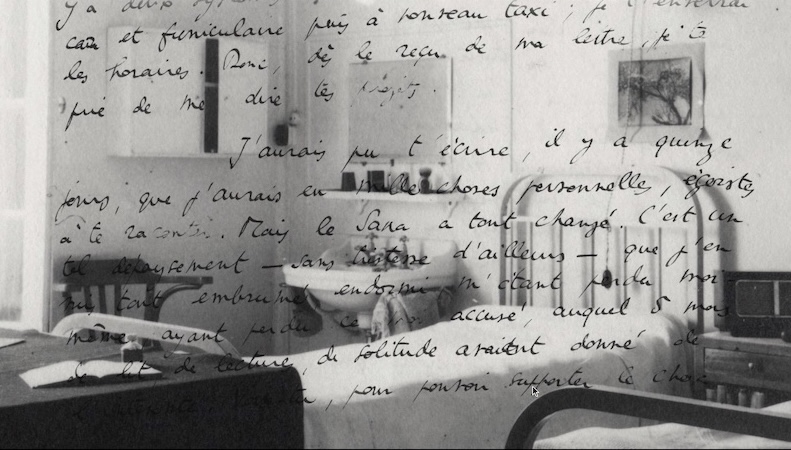 y a deux
car et funiculaire puis à nouveau taxi ; je t'enverrai
les horaires. Donc, dès le reçu de ma lettre, je te
prie de me dire tes projets.
J'aurais pu t'écrire, il y a quinze
jours, que j'aurais eu mille choses personnelles, égoïstes
à te raconter. Mais le Sana a tout changé. C'est un
tel dépaysement — sans tristesse d'ailleurs — que j'en
suis tout embrumé, endormi m'étant perdu moi-
même ayant perdu ce moi accusé, auquel 5 mois
de lit de lecture, de solitude avaient donné de
, pour pouvoir supporter le choc